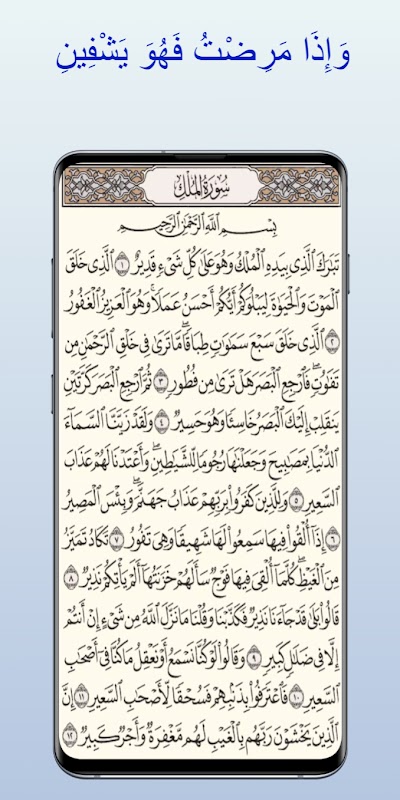 وَإِذَا مَرِضْتُ فَهُوَ يَشْفِينِ
سُورَةُ الْمُلْكِ
بِسْمِ اللَّهِ الرَّحْمَٰنِ الرَّحِيمِ
تَبَارَكَ الَّذِي بِيَدِهِ الْمُلْكُ وَهُوَ عَلَىٰ كُلِّ شَيْءٍ قَدِيرٌ ١ الَّذِي خَلَقَ
الْمَوْتَ وَالْحَيَاةَ لِيَبْلُوَكُمْ أَيُّكُمْ أَحْسَنُ عَمَلًا ۚ وَهُوَ الْعَزِيزُ الْغَفُورُ
٢ الَّذِي خَلَقَ سَبْعَ سَمَاوَاتٍ طِبَاقًا ۖ مَّا تَرَىٰ فِي خَلْقِ الرَّحْمَٰنِ مِن
تَفَاوُتٍ ۖ فَارْجِعِ الْبَصَرَ هَلْ تَرَىٰ مِن فُطُورٍ ٣ ثُمَّ ارْجِعِ الْبَصَرَ كَرَّتَيْنِ
يَنقَلِبْ إِلَيْكَ الْبَصَرُ خَاسِئًا وَهُوَ حَسِيرٌ ٤ وَلَقَدْ زَيَّنَّا السَّمَاءَ
الدُّنْيَا بِمَصَابِيحَ وَجَعَلْنَاهَا رُجُومًا لِّلشَّيَاطِينِ ۖ وَأَعْتَدْنَا لَهُمْ عَذَابَ
السَّعِيرِ ٥ وَلِلَّذِينَ كَفَرُوا بِرَبِّهِمْ عَذَابُ جَهَنَّمَ ۖ وَبِئْسَ الْمَصِيرُ
٦ إِذَا أُلْقُوا فِيهَا سَمِعُوا لَهَا شَهِيقًا وَهِيَ تَفُورُ ٧ تَكَادُ تَمَيَّزُ
مِنَ الْغَيْظِ ۖ كُلَّمَا أُلْقِيَ فِيهَا فَوْجٌ سَأَلَهُمْ خَزَنَتُهَا أَلَمْ يَأْتِكُمْ نَذِيرٌ ٨
قَالُوا بَلَىٰ قَدْ جَاءَنَا نَذِيرٌ فَكَذَّبْنَا وَقُلْنَا مَا نَزَّلَ اللَّهُ مِن شَيْءٍ إِنْ أَنتُمْ
إِلَّا فِي ضَلَالٍ كَبِيرٍ ٩ وَقَالُوا لَوْ كُنَّا نَسْمَعُ أَوْ نَعْقِلُ مَا كُنَّا فِي أَصْحَابِ
السَّعِيرِ ١٠ فَاعْتَرَفُوا بِذَنبِهِمْ فَسُحْقًا لِّأَصْحَابِ السَّعِيرِ ١١ إِنَّ
الَّذِينَ يَخْشَوْنَ رَبَّهُم بِالْغَيْبِ لَهُم مَّغْفِرَةٌ وَأَجْرٌ كَبِيرٌ ١٢